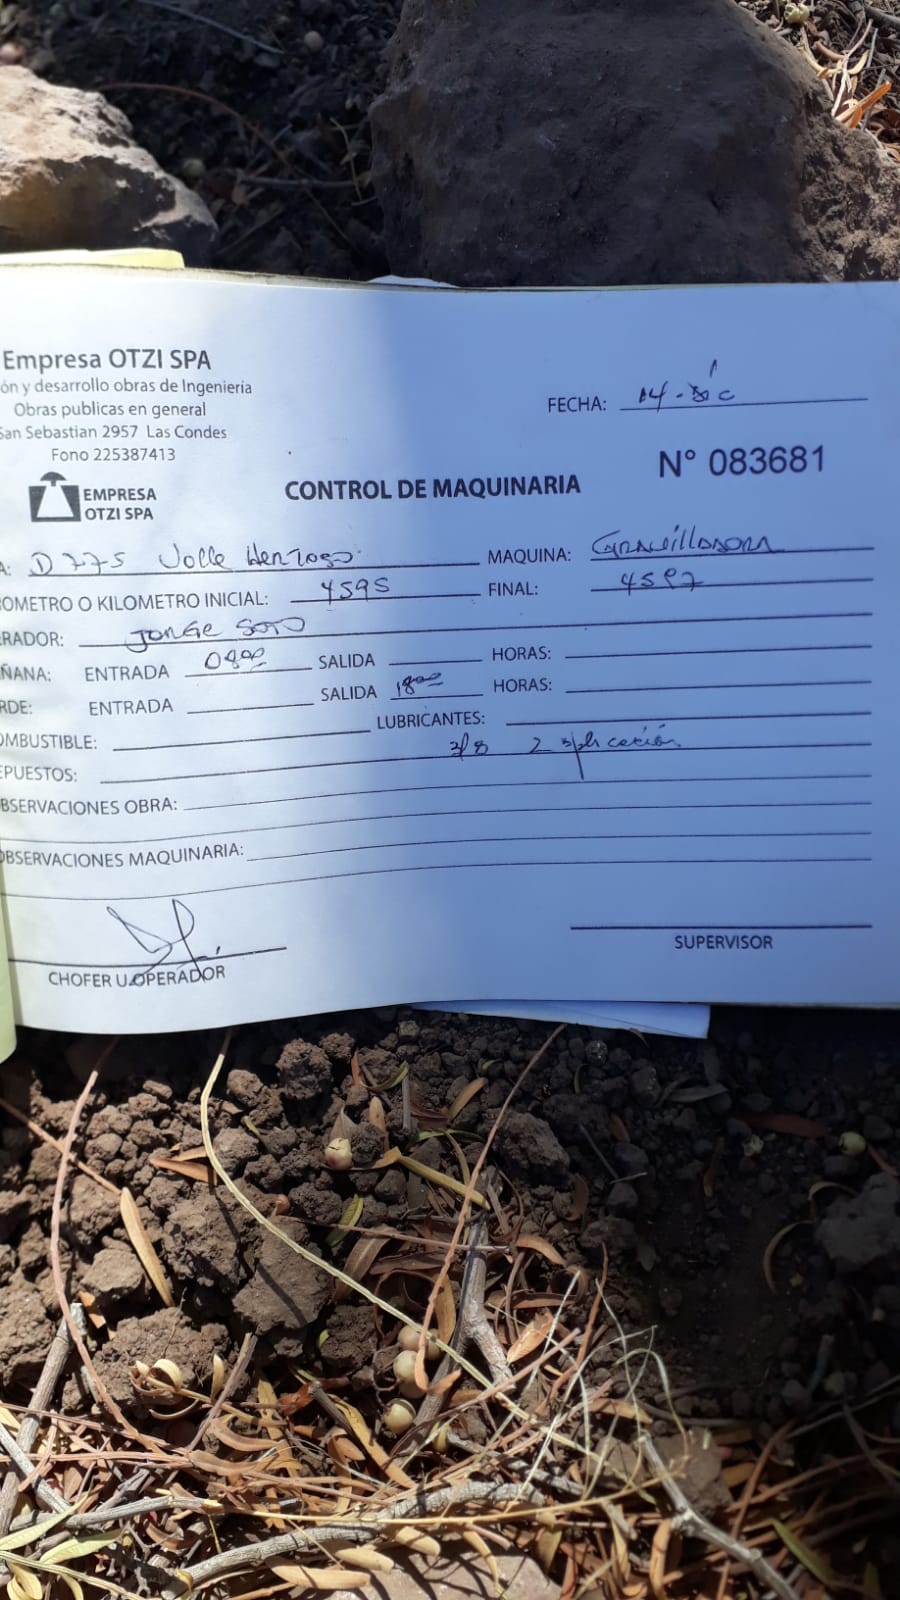 Empresa OTZI SPA
ón y desarrollo obras de Ingenieria
Obras publicas en general
San Sebastian 2957 Las Condes
Fono 225387413
EMPRESA
OTZI SPA
FECHA: 14 - Dic
CONTROL DE MAQUINARIA
N° 083681
A: D 775 Valle Hermoso MAQUINA: Gravilladora
OMETRO O KILOMETRO INICIAL: 4595 FINAL: 4597
ERADOR: Jorge Soto
ÑANA: ENTRADA 0800 SALIDA HORAS:
RDE: ENTRADA SALIDA 1800 HORAS:
OMBUSTIBLE: LUBRICANTES:
EPUESTOS: 3/8 2 aplicación
OBSERVACIONES OBRA:
OBSERVACIONES MAQUINARIA:
CHOFER U.OPERADOR
SUPERVISOR